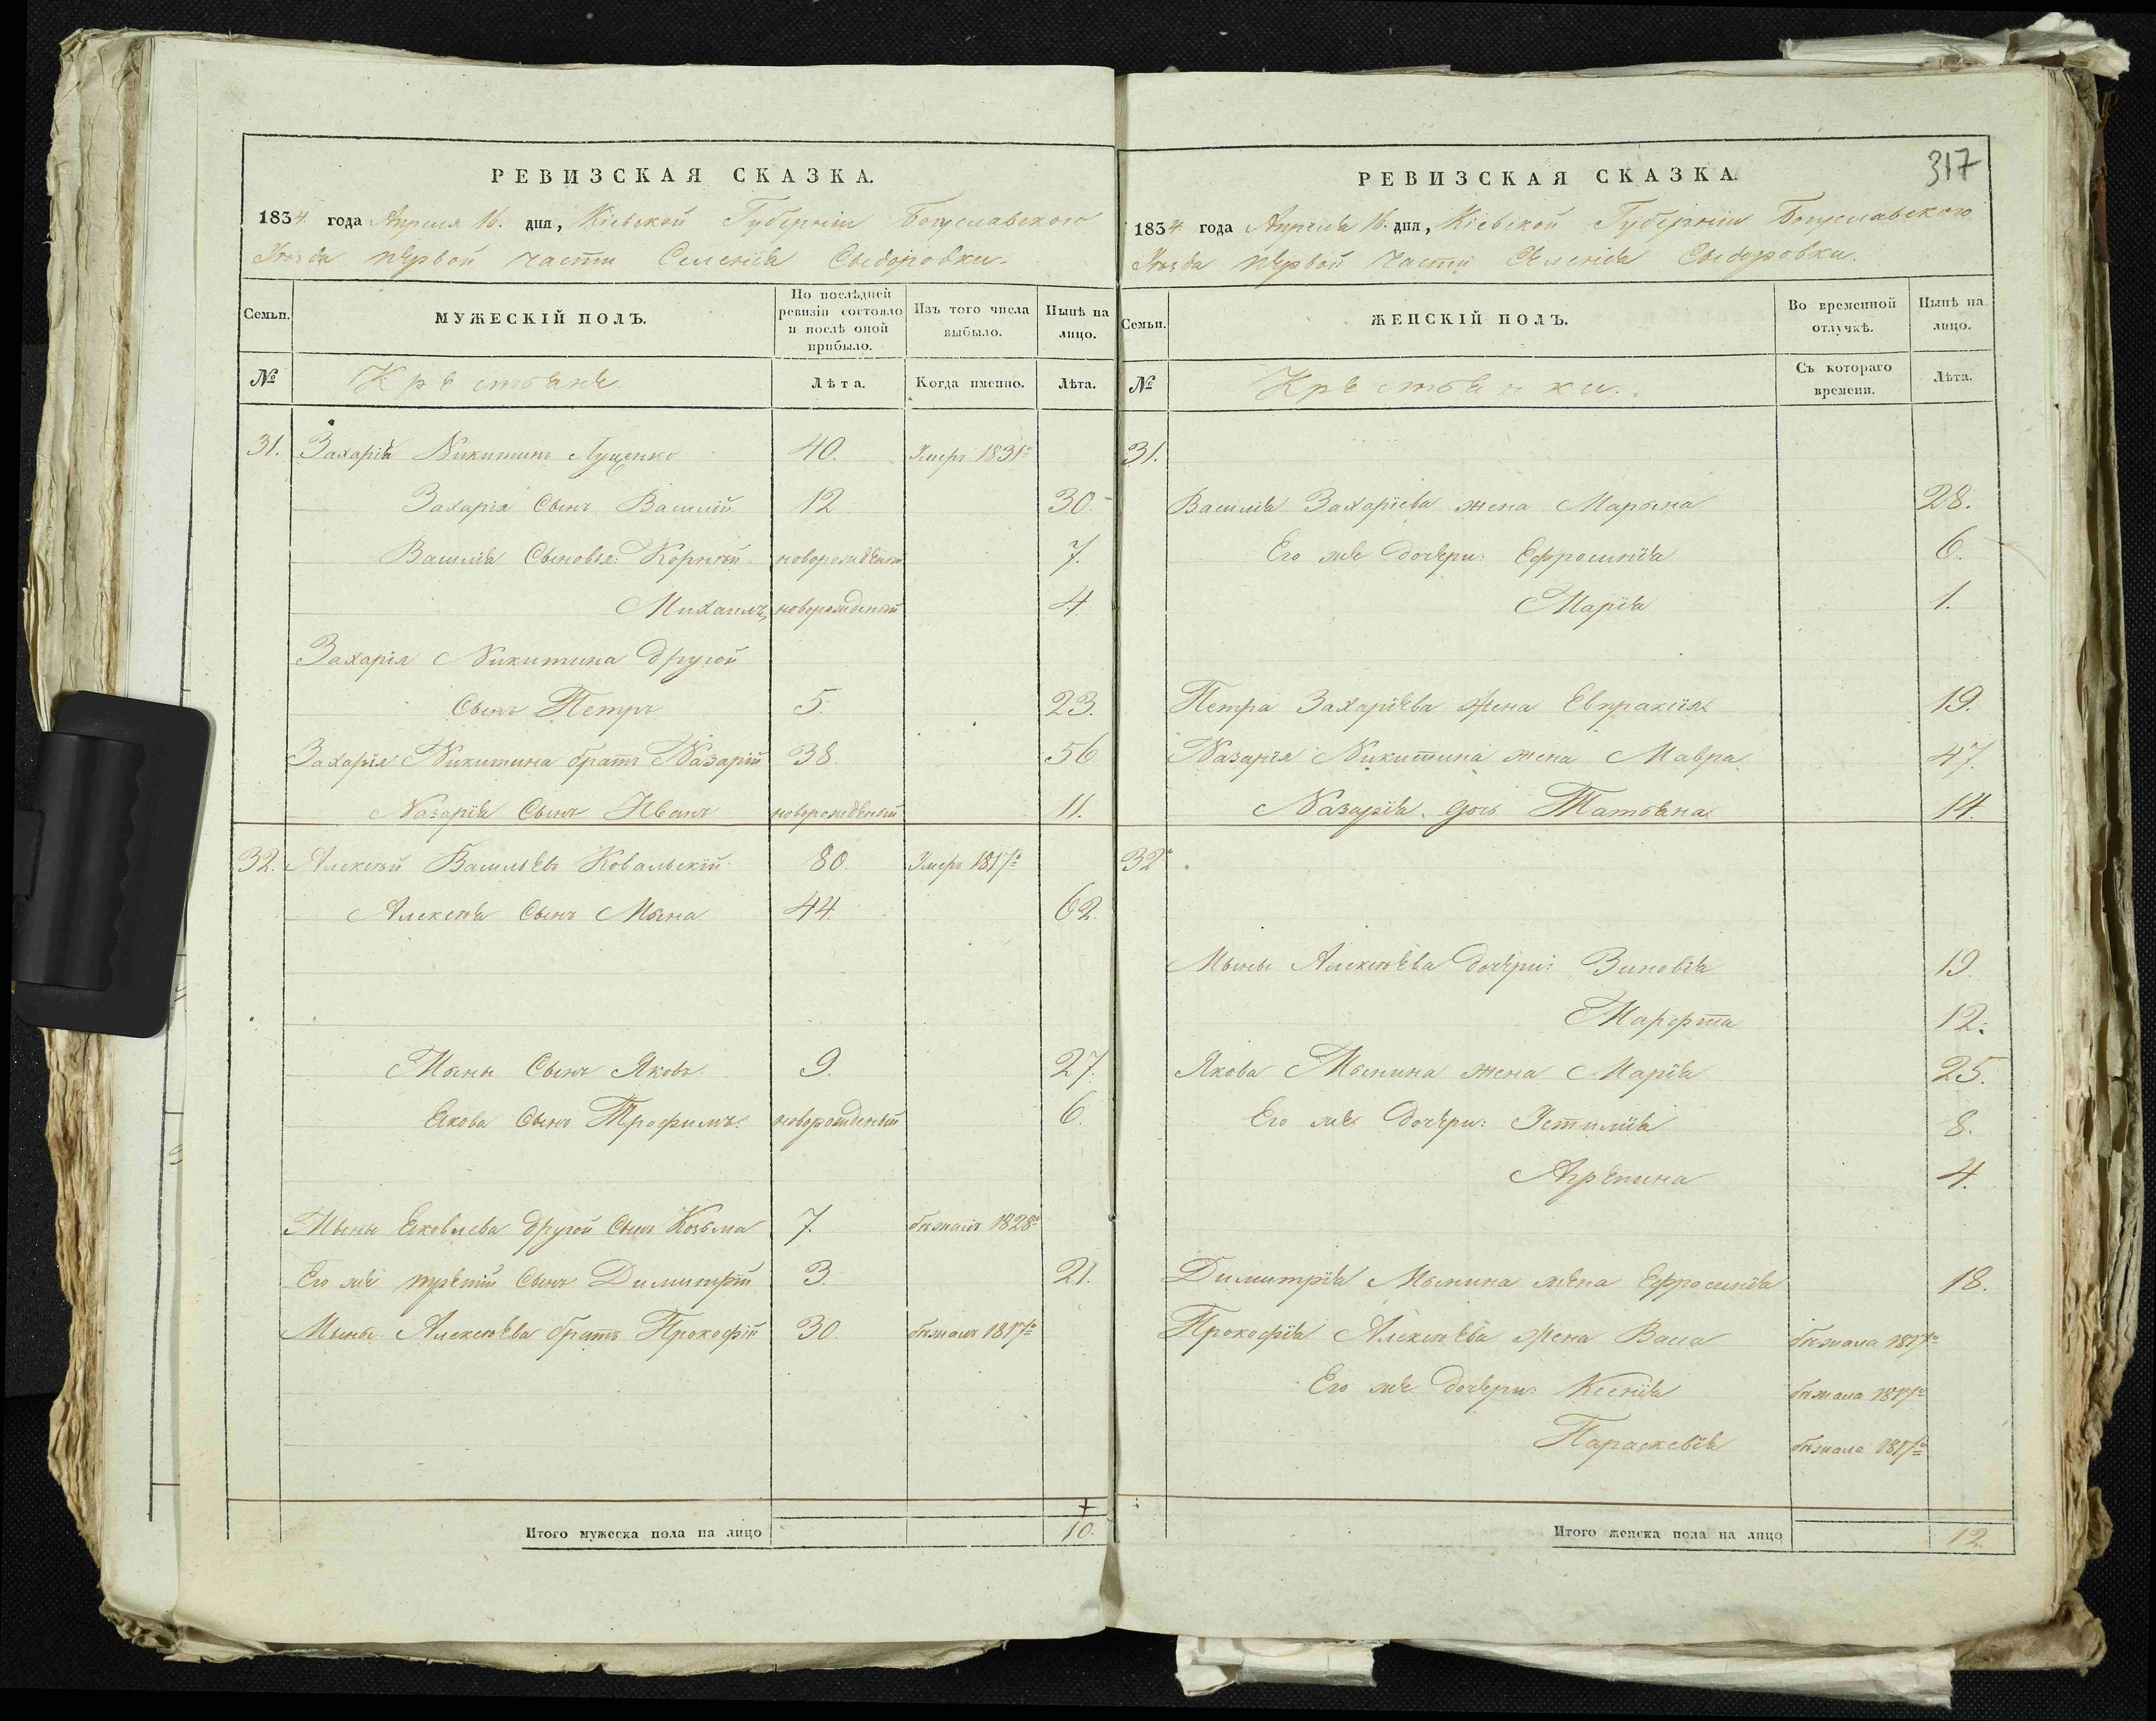 РЕВИЗСКАЯ СКАЗКА.
1834. года Апреля 16. дня, Кіевской Губерніи Богуславского
Уѣзда первой части Селенія Сыдоровки.
Семьи.
МУЖЕСКІЙ ПОЛЪ.
По послѣдней ревизіи состояло и послѣ оной прибыло.
Изъ того числа выбыло.
Нынѣ на лицо.
№
Крестьяне.
Лѣта.
Когда именно.
Лѣта.
31. Захарій Никитинъ Луценко 40. Умеръ 1831го
Захарія Сынъ Василій 12 30.
Василія Сыновья: Корнѣй новорожденый 7.
Михаилъ, новорожденый 4
Захарія Никитина другой
Сынъ Петръ 5. 23.
Захарія Никитина братъ Назарій 38. 56
Назарія Сынъ Иванъ новорожденый 11.
32. Алексѣй Васильевъ Ковальскій 80. Умеръ 1817го
Алексѣя Сынъ Мына 44. 62.
Мыны Сынъ Яковъ 9. 27.
Якова Сынъ Трофимъ новорожденый 6.
Мыны Яковлева другой Сынъ Козьма 7. бѣжалъ 1828го
Его же третій Сынъ Димитрій 3. 21.
Мыны Алексѣева братъ Прокофій 30. бѣжалъ 1817го
Итого мужеска пола на лицо 10.
317
РЕВИЗСКАЯ СКАЗКА.
1834. года Апреля 16. дня, Кіевской Губерніи Богуславского
Уѣзда первой части Селенія Сыдоровки.
Семьи.
ЖЕНСКІЙ ПОЛЪ.
Во временной отлучкѣ.
Нынѣ на лицо.
№
Крестьянки.
Съ котораго времени.
Лѣта.
31.
Василія Захаріева жена Марына 28.
Его же дочери: Ефросинія 6.
Марія 1.
Петра Захаріева жена Евпраксія 19.
Назарія Никитина жена Мавра 47.
Назарія дочь Татьяна 14.
32
Мыны Алексѣева дочери: Зиновія 19.
Марфта 12.
Якова Мынина жена Марія 25.
Его же дочери: Устилія 8.
Агрепина 4.
Димитрія Мынина жена Ефросинія 18.
Прокофія Алексѣева жена Васа бѣжала 1817го
Его же дочери: Ксенія бѣжала 1817го
Параскевія бѣжала 1817го
Итого женска пола на лицо 12.